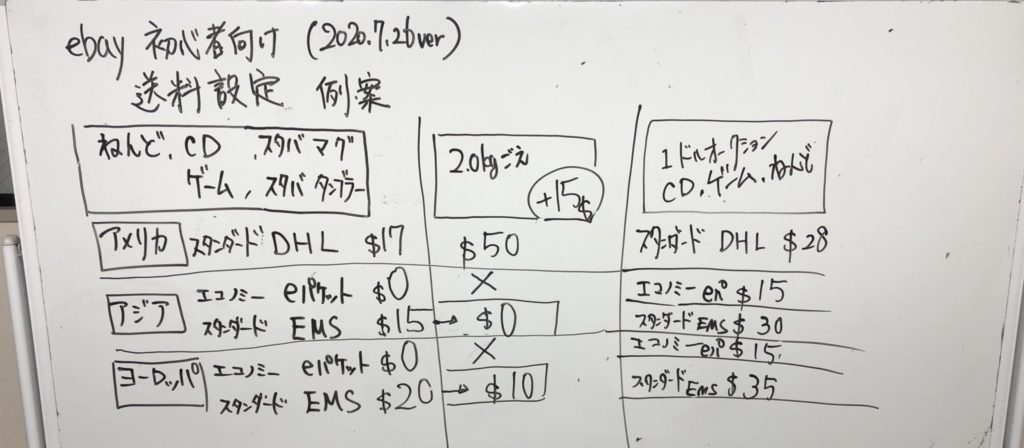 ebay 初心者向け (2020.7.26ver)
送料設定 例案
ねんど、CD 、スタバ マグ
ゲーム、スタバ タンブラー
2.0kgごえ
+15$
1ドルオークション
CD、ゲーム、ねんど
アメリカ スタンダード DHL $17 $50 スタンダード DHL $28
アジア
エコノミー eパケット $0 × エコノミー eパ $15
スタンダード EMS $15 → $0 スタンダード EMS $30
ヨーロッパ
エコノミー eパケット $0 × エコノミー eパ $15
スタンダード EMS $20 → $10 スタンダード EMS $35